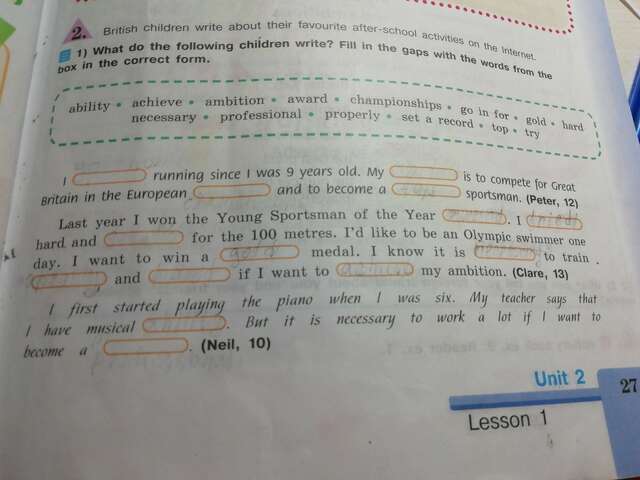 2. British children write about their favourite after-school activities on the Internet.
1) What do the following children write? Fill in the gaps with the words from the
box in the correct form.
ability • achieve • ambition • award • championships • go in for • gold • hard
necessary • professional • properly • set a record • top • try
I running since I was 9 years old. My is to compete for Great
Britain in the European and to become a sportsman. (Peter, 12)
Last year I won the Young Sportsman of the Year . I
hard and for the 100 metres. I'd like to be an Olympic swimmer one
day. I want to win a gold medal. I know it is to train
and if I want to my ambition. (Clare, 13)
I first started playing the piano when I was six. My teacher says that
I have musical . But it is necessary to work a lot if I want to
become a . (Neil, 10)
Unit 2
27
Lesson 1